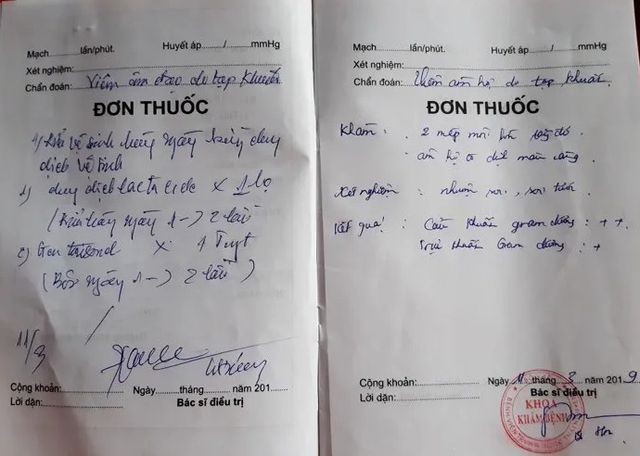 Mạch............lần/phút. Huyết áp......../........mmHg
Xét nghiệm:
Chẩn đoán: Viêm âm đạo do tạp khuẩn
ĐƠN THUỐC
vệ sinh hàng ngày bằng dung
dịch vệ sinh
1) dung dịch lactacide x 1 lọ
(Rửa hàng ngày 1 -> 2 lần)
2) x 1 Tuýp
(Bôi ngày 1 -> 2 lần)
11/3
Cộng khoản: Ngày........tháng........ năm 201....
Lời dặn: Bác sĩ điều trị
Mạch............lần/phút. Huyết áp......../........mmHg
Xét nghiệm:
Chẩn đoán: Viêm âm hộ do tạp khuẩn
ĐƠN THUỐC
Khám : 2 mép môi đỏ
âm hộ có dịch màu
Xét nghiệm : nhuộm soi, soi tươi
Kết quả : Cầu khuẩn gram dương : + +
Trực khuẩn Gram dương : +
Cộng khoản: Ngày 11 tháng 3 năm 2019
Lời dặn: Bác sĩ điều trị
KHOA
KHÁM BỆNH